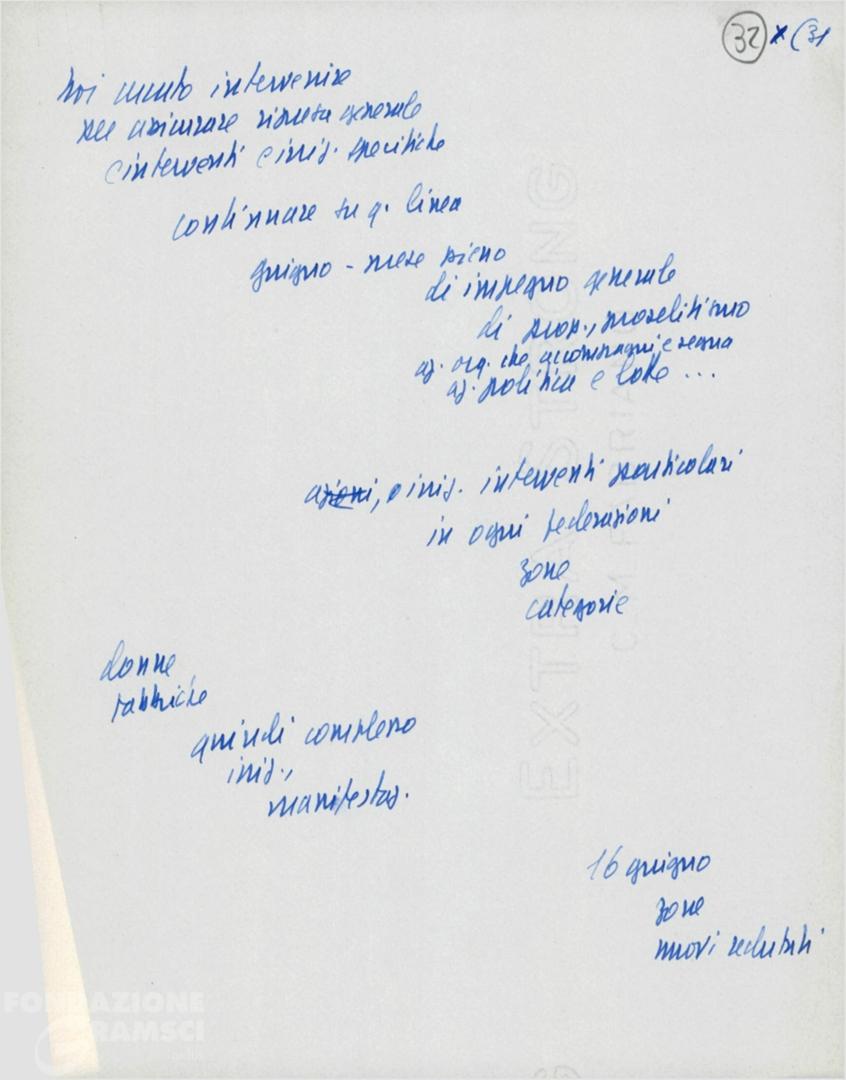 32 x (31
noi intervenire
per assicurare ripresa generale
e interventi e iniz. specifiche
continuare su q. linea
giugno - mese pieno
di impegno generale
di prop., proselitismo
az. org. che accompagni e segua
az. politica e lotte ...
azioni, o iniz. interventi particolari
in ogni federazioni
zone
categorie
donne
fabbriche
quindi complesso
iniz.,
manifestaz.
16 giugno
zone
nuovi reclutati
EXTRA STRONG
FABRIANO
FONDAZIONE
GRAMSCI